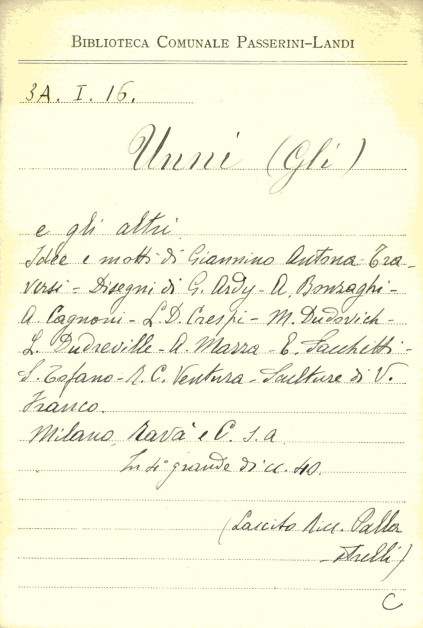 BIBLIOTECA COMUNALE PASSERINI-LANDI
3A. I. 16.
Unni (Gli)
e gli altri
Idee e motti di Giannino Antona-Tra-
versi - Disegni di G. Ardy - A. Bonzaghi -
A. Cagnoni - L. D. Crespi - M. Dudovich -
L. Dudreville - A. Mazza - E. Sacchetti -
S. Tofano - R. C. Ventura - Sculture di V.
Franco.
Milano, Ravà e C. s. a.
In 4° grande di cc. 40.
(Lascito Ricc. Palla
strelli)
C